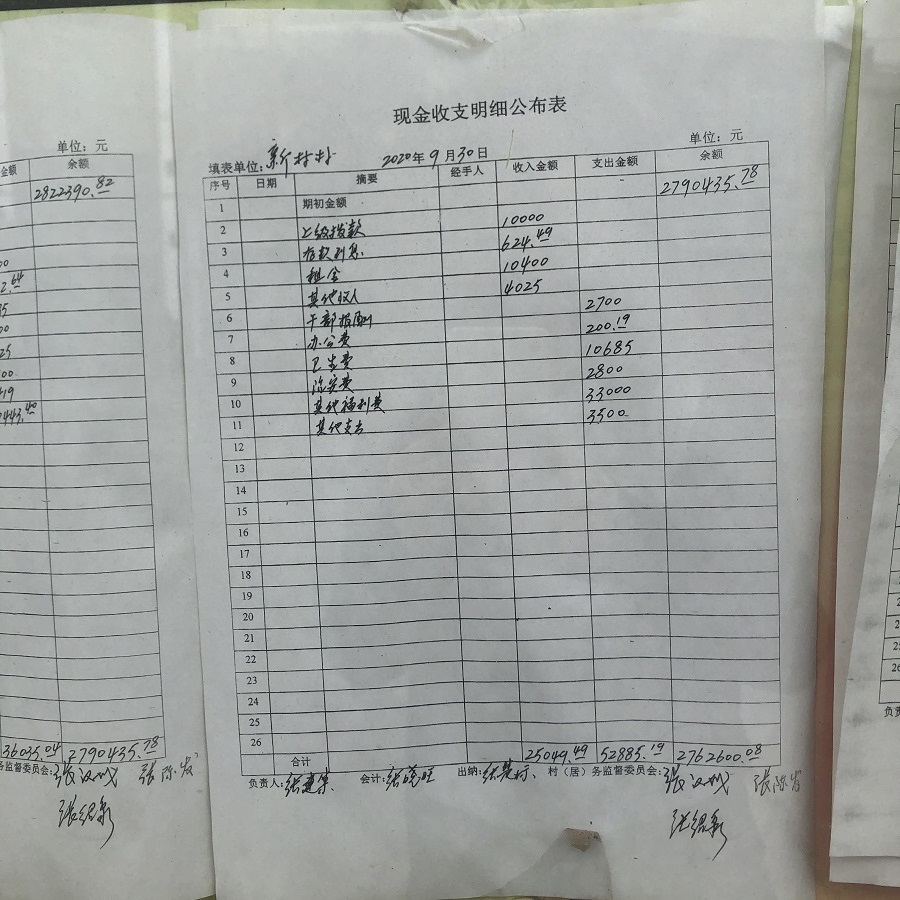 单位：元
金额 余额
2822390.82
36035.04 2790435.78
务监督委员会：
现金收支明细公布表
填表单位：新村村 2020年9月30日 单位：元
序号 日期 摘要 经手人 收入金额 支出金额 余额
1 期初金额 2790435.78
2 上级拨款 10000
3 存款利息 624.49
4 租金 10400
5 其他收入 4025
6 干部报酬 2700
7 办公费 200.19
8 卫生费 10685
9 治安费 2800
10 其他福利费 33000
11 其他支出 3500
12
13
14
15
16
17
18
19
20
21
22
23
24
25
26
合计 25049.49 52885.19 2762600.08
负责人： 会计： 出纳： 村（居）务监督委员会：